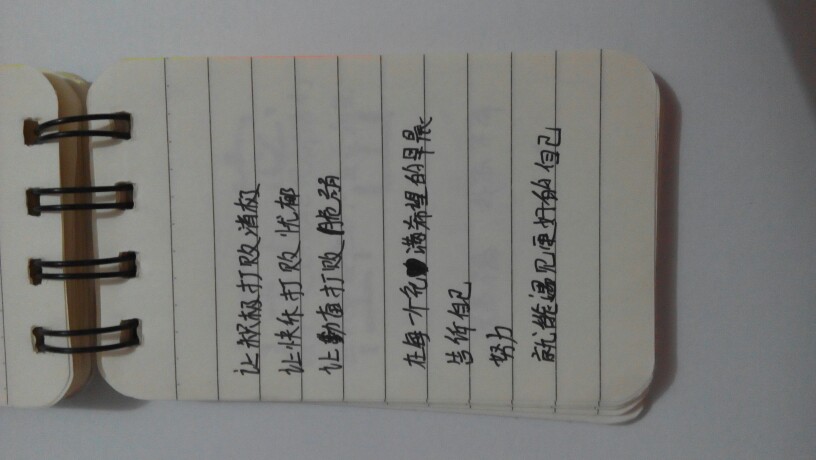 让积极打败消极
让快乐打败忧郁
让勤奋打败脆弱
在每个充满希望的早晨
告诉自己
努力
就能遇见更好的自己